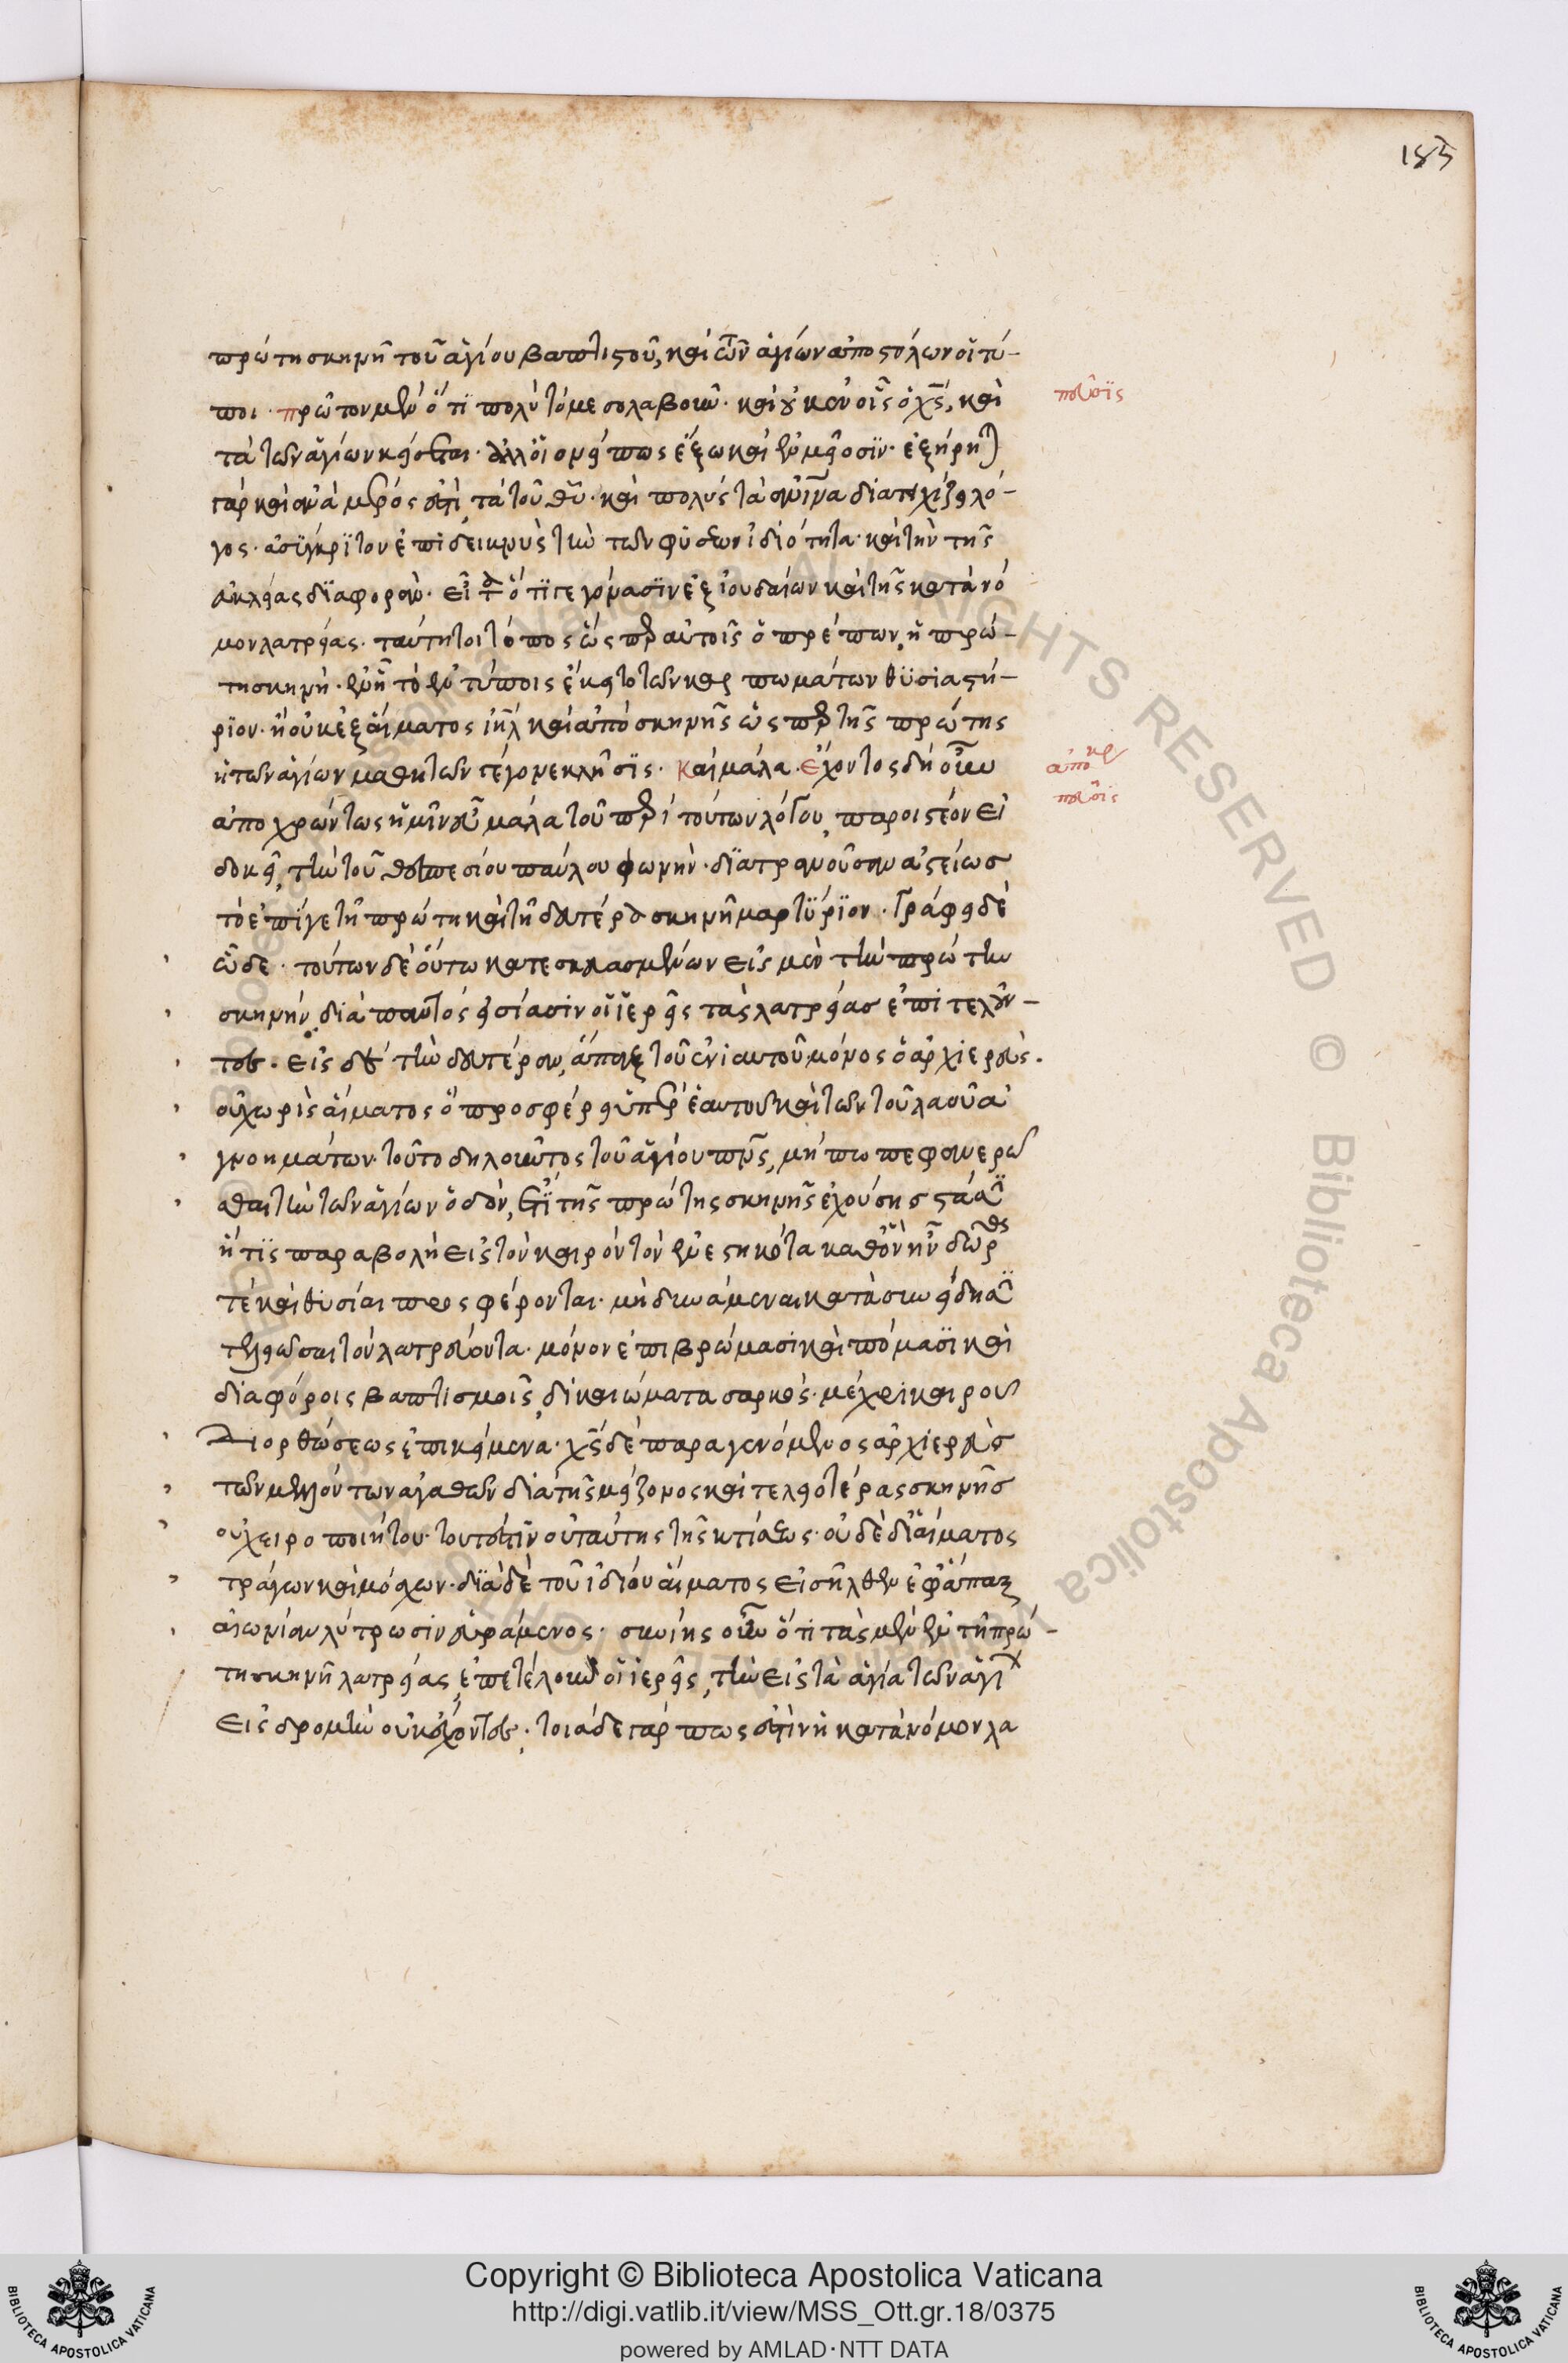 183
πρώτη σκηνῆ τοῦ ἁγίου βαπτιστοῦ, καὶ τῶν ἁγίων ἀποστόλων οἱ τύ-
ποι. πρῶτον μὲν ὅτι πολὺ τὸ μεσολαβοῦν. καὶ οὐκ ἐν οἷς ὁ χς, καὶ
παλλ
τὰ τῶν ἁγίων κείσεται. ἀλλ' οἱονεί πως ἔξω καὶ ἐν μείοσιν. ἐξήρηται
γὰρ καὶ ἀνὰ μέρος ἐστὶ, τὰ τοῦ θυ. καὶ πολὺς τὰ διατειχίζει λό-
γος. ἀσύγκριτον ἐπιδεικνὺς τὴν τῶν φύσεων ἰδιότητα. καὶ τὴν τῆς
εὐκλείας διαφοράν. εἶτα ὅτι γεγόνασιν ἐξ ἰουδαίων καὶ τῆς κατὰ νό
μον λατρείας. ταύτῃ τοι τόπος ὡς περ αὐτοῖς ὁ πρέπων, ἡ πρώ-
τη σκηνή. ἐν ᾗ τὸ ἐν τύποις ἔκειτο τῶν καρπωμάτων θυσιαστή-
ριον. ἢ οὐκ ἐξ αἵματος ιηλ καὶ ἀπὸ σκηνῆς ὥς περ τῆς πρώτης
ἡ τῶν ἁγίων μαθητῶν γέγονε κλῆσις. Καὶ μάλα. ἔχοντος δὴ οὖν
ἀποκρ
ἀποχρώντως ἡμῖν εὖ μάλα τοῦ περὶ τούτων λόγου, παροιστέον εἰ
δοκεῖ, τὴν τοῦ θεσπεσίου παύλου φωνὴν. διατρανοῦσαν ἀστείως
τὸ ἐπί γε τῇ πρώτῃ καὶ τῇ δευτέρᾳ σκηνῇ μαρτύριον. Γράφει δὲ
ὧδε. τούτων δὲ οὕτω κατεσκευασμένων εἰς μὲν τὴν πρώτην
σκηνήν, διὰ παντὸς εἰσίασιν οἱ ἱερεῖς τὰς λατρείας ἐπιτελοῦν-
τες. εἰς δὲ τὴν δευτέραν, ἅπαξ τοῦ ἐνιαυτοῦ μόνος ὁ ἀρχιερεύς.
οὐ χωρὶς αἵματος ὃ προσφέρει ὑπὲρ ἑαυτοῦ καὶ τῶν τοῦ λαοῦ ἀ
γνοημάτων. τοῦτο δηλοῦντος τοῦ ἁγίου πνς, μή πω πεφανερῶ
σθαι τὴν τῶν ἁγίων ὁδόν, ἔτι τῆς πρώτης σκηνῆς ἐχούσης στάσιν
ἥτις παραβολὴ εἰς τὸν καιρὸν τὸν ἐνεστηκότα καθ' ὃν ἢν δῶρά
τε καὶ θυσίαι προσφέρονται. μὴ δυνάμεναι κατὰ συνείδησιν
τελειῶσαι τὸν λατρεύοντα. μόνον ἐπὶ βρώμασι καὶ πόμασι καὶ
διαφόροις βαπτισμοῖς, δικαιώματα σαρκός. μέχρι καιροῦ
Διορθώσεως ἐπικείμενα. χς δὲ παραγενόμενος ἀρχιερεὺς
τῶν μελλόντων ἀγαθῶν διὰ τῆς μείζονος καὶ τελειοτέρας σκηνῆς
οὐ χειροποιήτου. τουτέστιν οὐ ταύτης τῆς κτίσεως. οὐδὲ δι' αἵματος
τράγων καὶ μόσχων. διὰ δὲ τοῦ ἰδίου αἵματος εἰσῆλθεν ἐφάπαξ
αἰωνίαν λύτρωσιν εὑράμενος. συνίης οὖν ὅτι τὰς μὲν ἐν τῇ πρώ-
τῃ σκηνῇ λατρείας, ἐπετέλουν οἱ ἱερεῖς, τὴν εἰς τὰ ἅγια τῶν ἁγίων
εἰσδρομὴν οὐκ ἔχοντες. τοιάδε γάρ πως ἐστὶν ἡ κατὰ νόμον λα
Copyright © Biblioteca Apostolica Vaticana
http://digi.vatlib.it/view/MSS_Ott.gr.18/0375
powered by AMLAD·NTT DATA
BIBLIOTECA APOSTOLICA VATICANA
BIBLIOTECA APOSTOLICA VATICANA